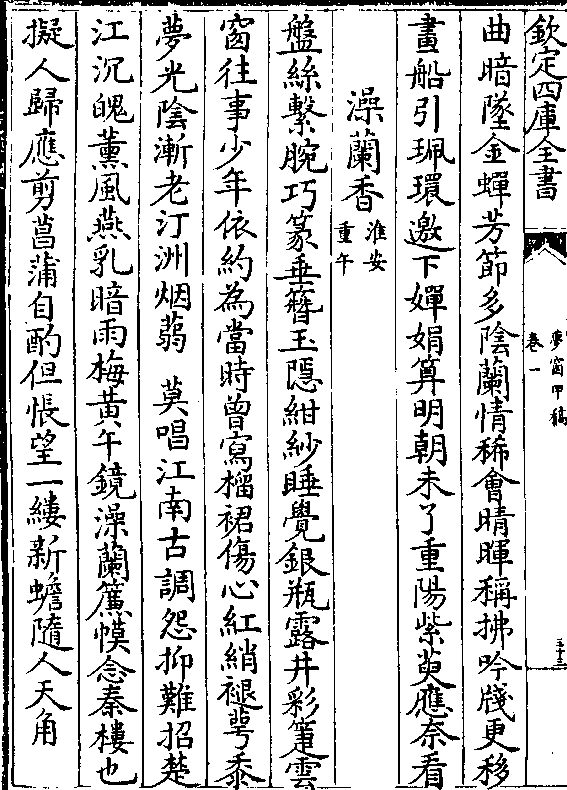 欽定四庫全書
夢窗甲稿
卷一
五十三
曲暗墜金蟬芳節多陰蘭情稀會晴暉稱拂吟牋更移
畫船引珮環邀下嬋娟算明朝未了重陽紫萸應奈看
澡蘭香 淮安重午
盤絲繫腕巧篆垂簪玉隱紺紗睡覺銀瓶露井彩箑雲
窗往事少年依約為當時曾寫榴裙傷心紅綃褪萼黍
夢光陰漸老汀洲烟蒻 莫唱江南古調怨抑難招楚
江沉魄薰風燕乳暗雨梅黃午鏡澡蘭簾幙念秦樓也
擬人歸應剪菖蒲自酌但悵望一縷新蟾隨人天角